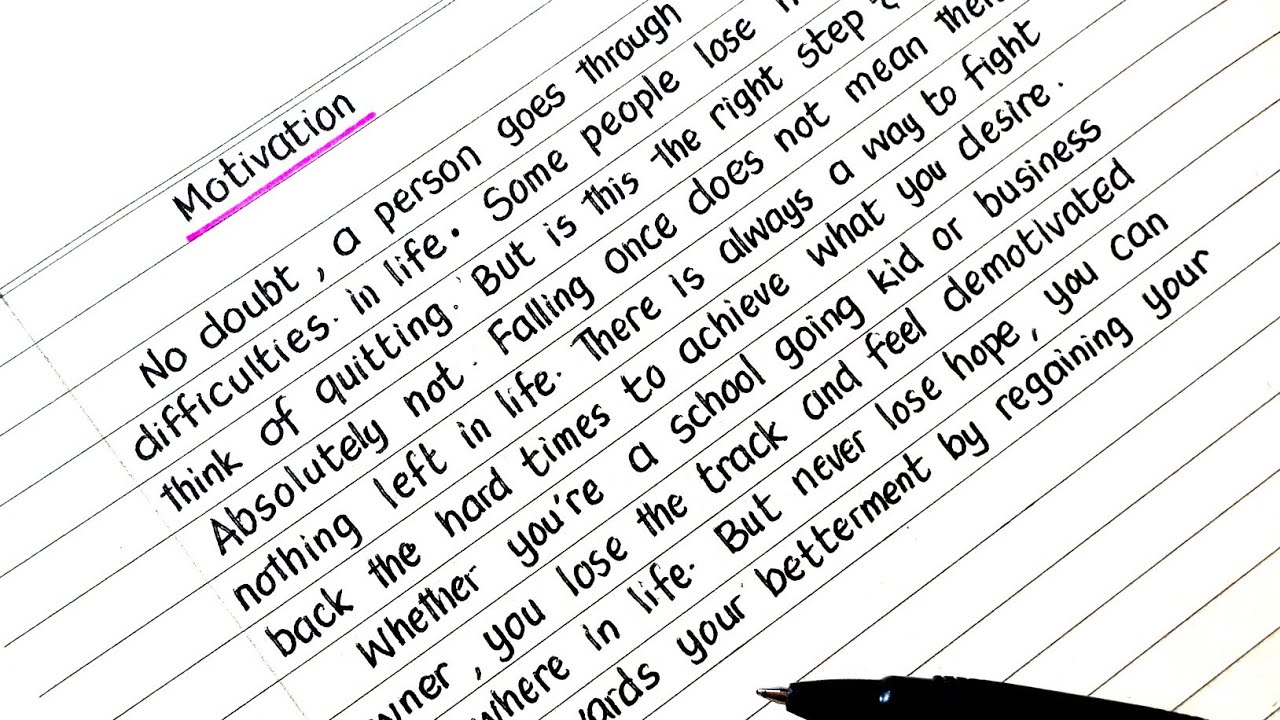 Motivation
No doubt, a person goes through
difficulties. in life. Some people lose
think of quitting. But is this the right step
Absolutely not. Falling once does not mean
nothing left in life. There is always a way to fight
back the hard times to achieve what you desire.
Whether you're a school going kid or business
, you lose the track and feel demotivated
in life. But never lose hope, you can
your betterment by regaining your